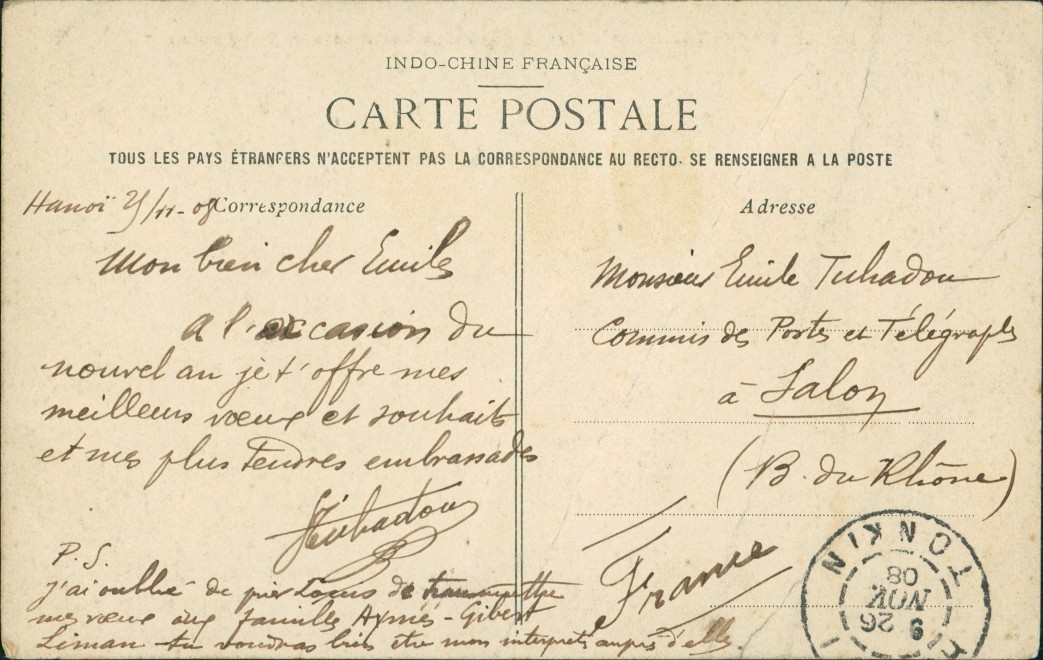 INDO-CHINE FRANÇAISE
CARTE POSTALE
TOUS LES PAYS ÉTRANGERS N'ACCEPTENT PAS LA CORRESPONDANCE AU RECTO. SE RENSEIGNER A LA POSTE
Correspondance
Hanoï 25/11-08
Mon bien cher Emile
A l'occasion du
nouvel an je t'offre mes
meilleurs vœux et souhaits
et mes plus tendres embrassades
Tuhadou
P.S.
J'ai oublié de transmettre
mes vœux aux familles Aymés - Gibert
Liman tu voudras bien être mon interprète auprès d'elles.
Adresse
Monsieur Emile Tuhadou
Commis des Postes et Télégraphes
à Salon
(B. du Rhône)
France
TONKIN
26
NOV
08